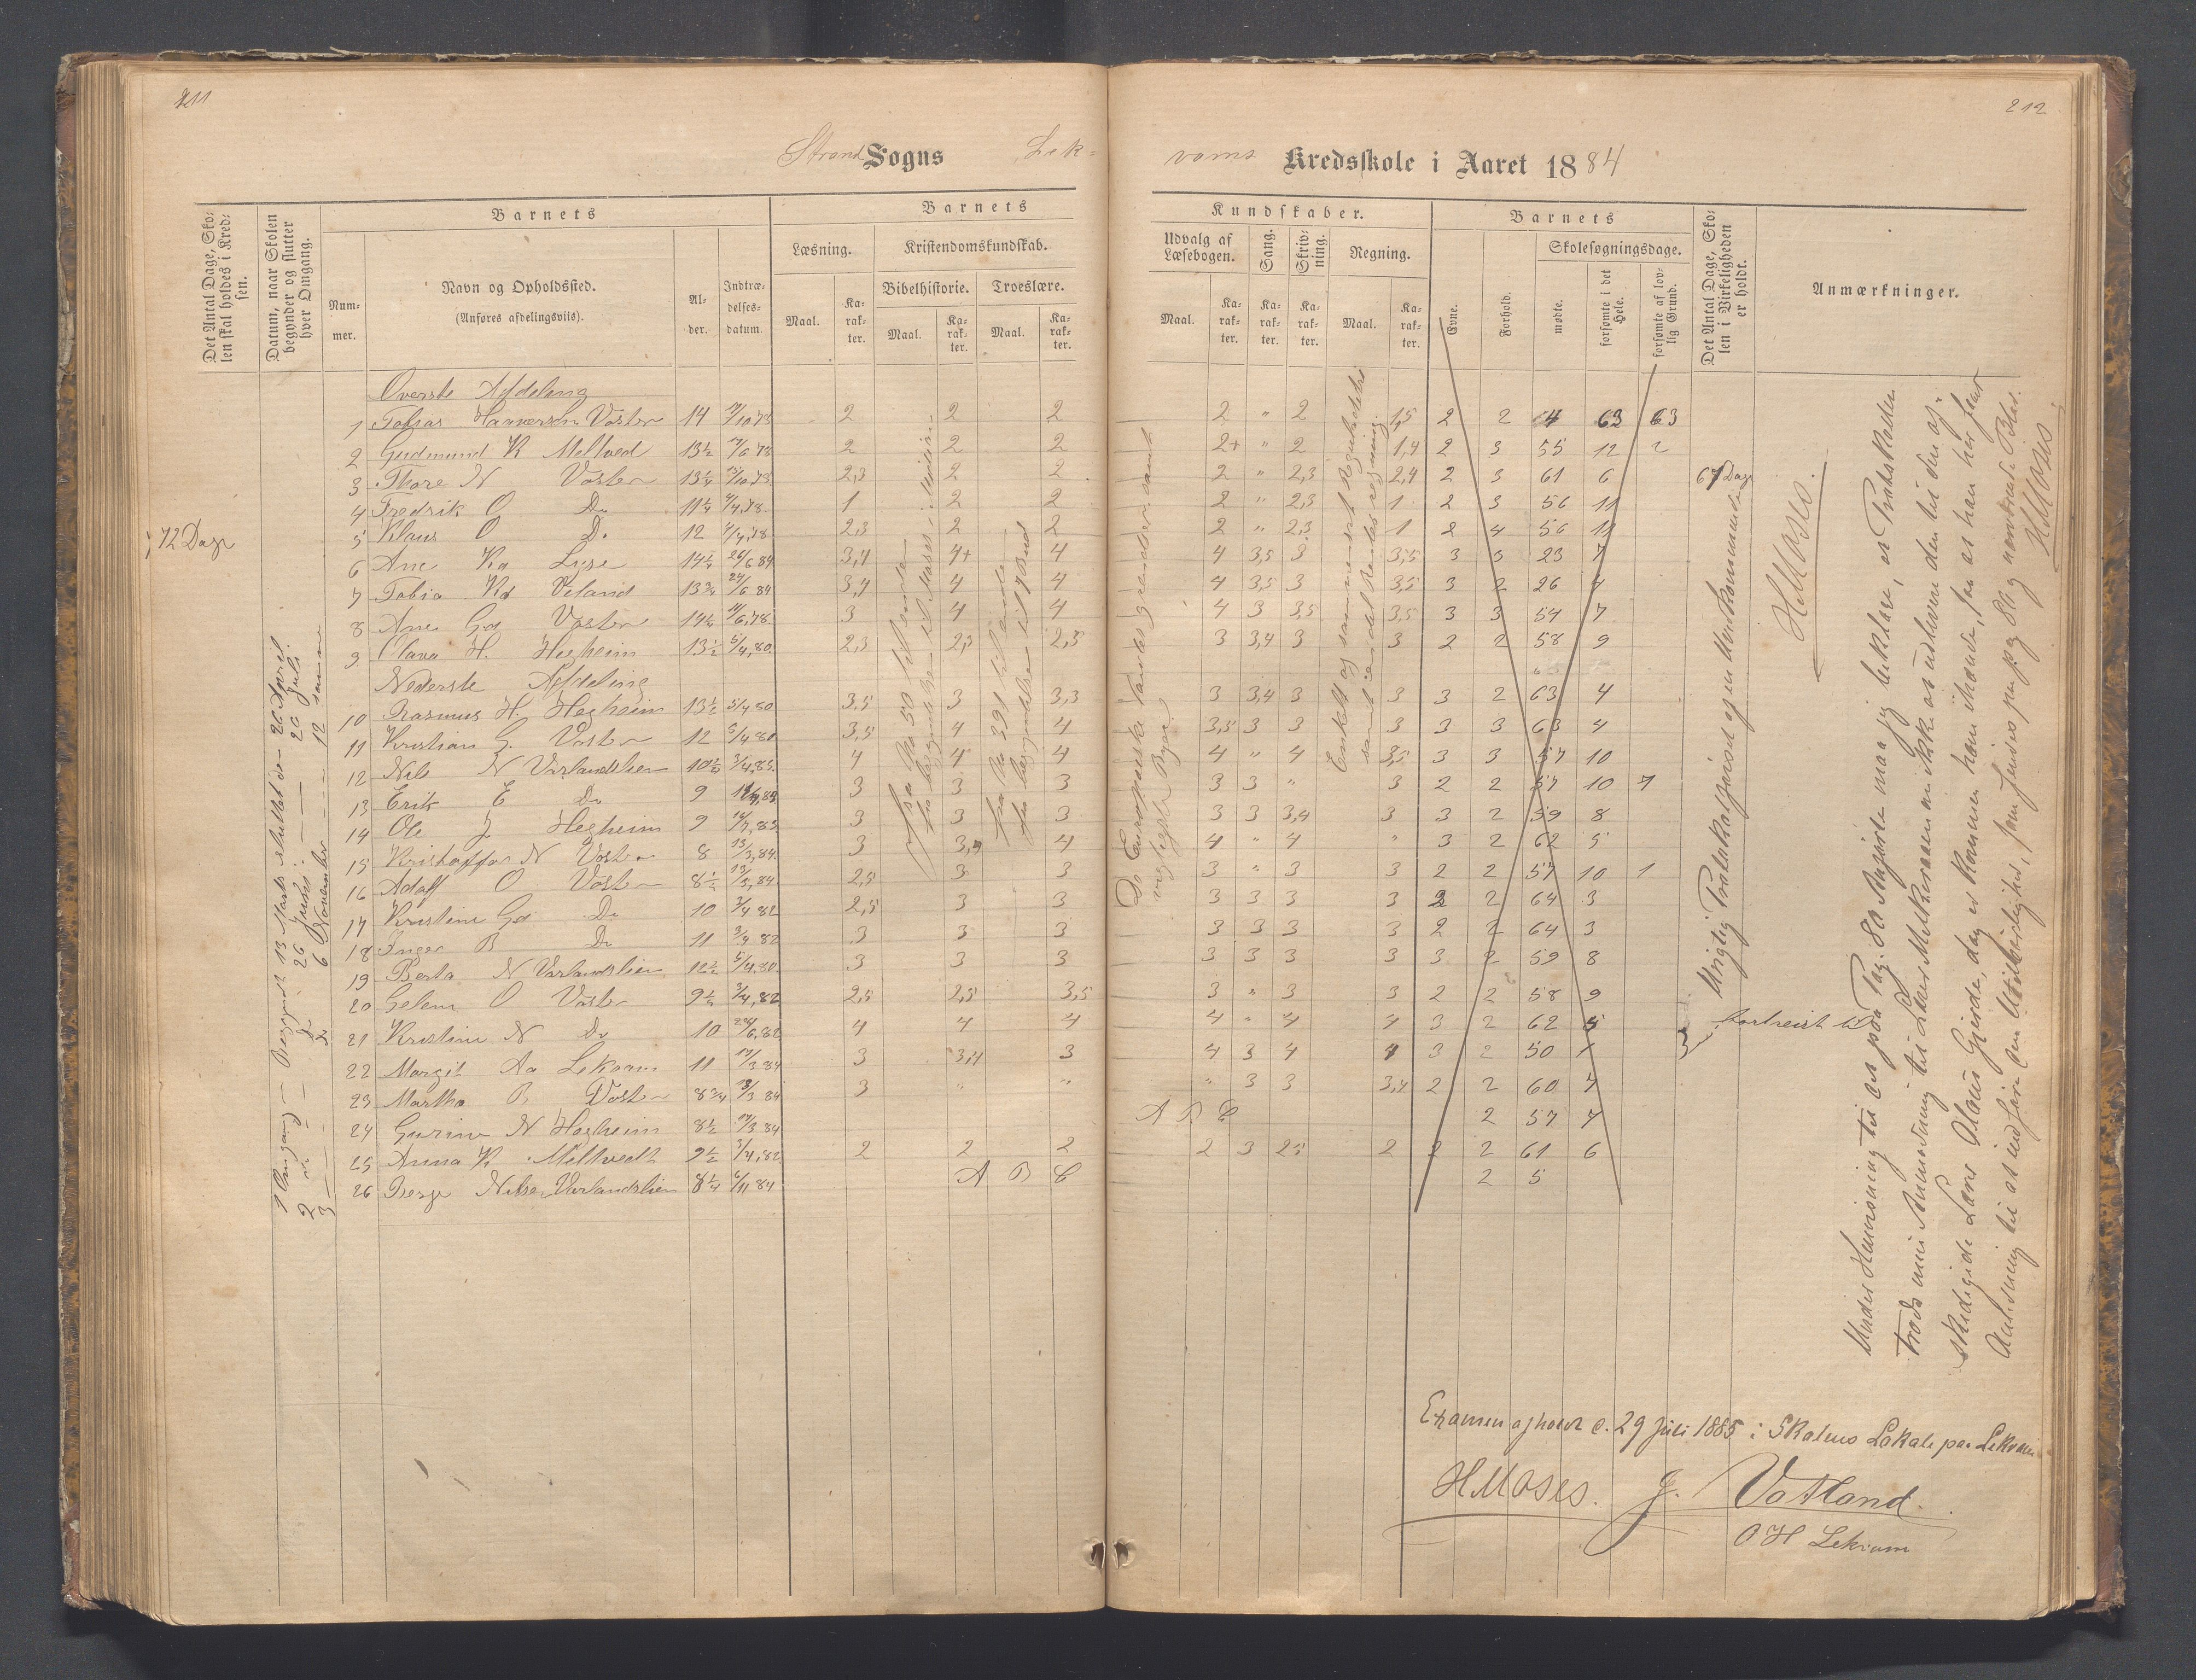 211
212
Strand Sogns Lek-
vams Kredsskole i Aaret 1884
Det Antal Dage, Skolen skal holdes i Kredsen.
Datum, naar Skolen begynder og slutter hver Omgang.
Barnets
Barnets
Kundskaber.
Barnets
Det Antal Dage, Skolen i Virkeligheden er holdt.
Anmærkninger.
Nummer.
Navn og Opholdssted.
(Anføres afdelingsviis).
Alder.
Indtrædelsesdatum.
Læsning.
Kristendomskundskab.
Bibelhistorie.
Troeslære.
Udvalg af Læsebogen.
Sang.
Skrivning.
Regning.
Evne.
Forhold.
Skolesøgningsdage.
mødte.
forsømte i det Hele.
forsømte af lovlig Grund.
Maal. Karakter. Maal. Karakter. Maal. Karakter.
Maal. Karakter. Karakter. Karakter. Maal. Karakter.
Øverste Afdeling
1 Tobias Vaster 14 2 2 2 2 " 2 1,5 2 2 4 63 63
2 Gudmund K Meltved 13½ 17/6 78 2 2 2 2+ " 2 1,4 2 3 55 12 2
3 Thore N Vaster 13¼ 2,3 2 2 2 " 2,3 2,4 2 3 61 6 67 Dage
4 Fredrik O Do 11¼ 4/4,78. 1 2 2 2 " 2,3 1 2 3 56 11
72 Dage
5 Klaus O Do 12 4/4,78 2,3 2 2 2 " 2,3 1 2 4 56 11
6 Ane Kd Lyse 14¼ 26/6 84 3,4 4+ 4 4 3,5 3 3,5 3 3 23 7
7 Tobia Kd Veland 13¾ 24/6 84 3,4 4 4 4 3,5 3 3,5 3 2 26 4
8 Ane Gd Vaster 14¼ 3 4 4 4 3 3,5 3,5 3 3 54 7
9 Olava H. Hegheim 13½ 5/4,80. 2,3 2,3 2,3 3 3,4 3 3 2 2 58 9
Nederste Afdeling
10 Rasmus H. Hegheim 13½ 5/4 80 3,5 3 3,3 3 3,4 3 3 3 2 63 4
11 Kristian G. Vaster 12 5/4 80 3,5 4 4 3,5 3 3 3 3 3 63 4
12 Nils N Varlandslien 10½ 4 4 4 4 " 4 3,5 3 3 57 10
13 Erik E Do 9 3 3 3 3 3 " 3 2 2 57 10 7
14 Ole J. Hegheim 9 3 3 3 3 3 3,4 3 3 2 59 8
15 Kristoffer N Vaster 8 13/3,84. 3 3,4 4 4 " 4 " 3 2 62 5
16 Adolf O Vaster 8½ 13/3,84 2,5 3 3 3 " 3 3 2 2 57 10 1
17 Kristine Gd Do 10 3/4 82 2,5 3 3 3 3 3 3 2 2 64 3
18 Inger B Do 11 3/4 82 3 3 3 3 3 3 3 2 2 64 3
19 Berta N Varlandslien 12½ 5/4,80. 3 3 3 3 3 3 3 3 2 59 8
20 Gelene O Vaster 9½ 3/4,82 2,5 2,5 3,5 3 " 3 3 2 2 58 9
21 Kristine N Do 10 24/6,82 4 4 4 4 " 4 4 3 2 62 5 bortreist
22 Margit Aa Lekvam 11 3 3,4 3 4 3 4 4 3 2 50 1
23 Martha B. Vaster 8¾ 13/3 84 3 " " " 3 3 3,4 2 2 60 7
24 Gurine N Hegheim 8½ A B C 2 57 7
25 Anna K. Meltvedt 9½ 3/4,82. 2 2 2 2 3 2,5 2 2 2 61 6
26 Berge Nilsen Varlandslien 8¼ 6/11 84 A B C 2 5
1 Omgang — Begyndt 13 Marts sluttet den 26 April
2 do — 26 Juni — 26 Juli
3 — 6 November — 12
fra No 50 til ende
fra begyndelsen til Moses's Historien
fra No 391 til ende
fra begyndelsen til 7 Bud
De Europæiske Landes grændser samt
vigtigste Byer.
Enkelt og sammensat Reguladetri
samt endel Rentes regning
Urigtig Protokolførsel af en Underkommende
HMoses.
Under Henvisning til paa Pag. 80 Anførte maa jeg beklage, at Protokollen
trods min Anmodning til Lærer Melkeraaen ikke at udlevere den til den af-
skedigede Lærer Olaus Gjerde, dog er kommen ham ihænde, for at han her faar
Anledning til at indføre en Utilbørlighed, som findes paa pag 80 og nærværende Blad.
HMoses
Examen afholdt d. 29 Juli 1885 i Skolens Lokale paa Lekvam
HMoses. J. Vatland.
O H Lekvam